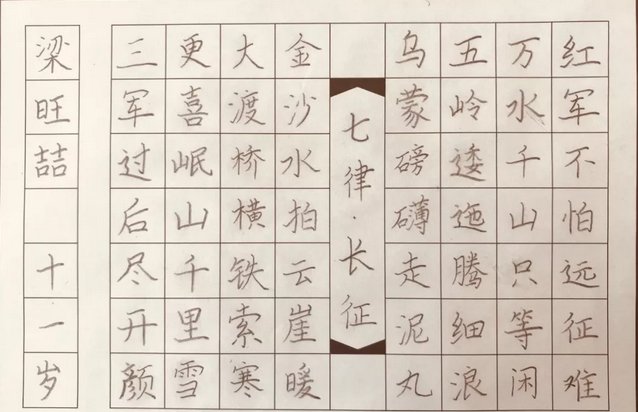 红军不怕远征难
万水千山只等闲
五岭逶迤腾细浪
乌蒙磅礴走泥丸
七律·长征
金沙水拍云崖暖
大渡桥横铁索寒
更喜岷山千里雪
三军过后尽开颜
梁旺喆 十一岁